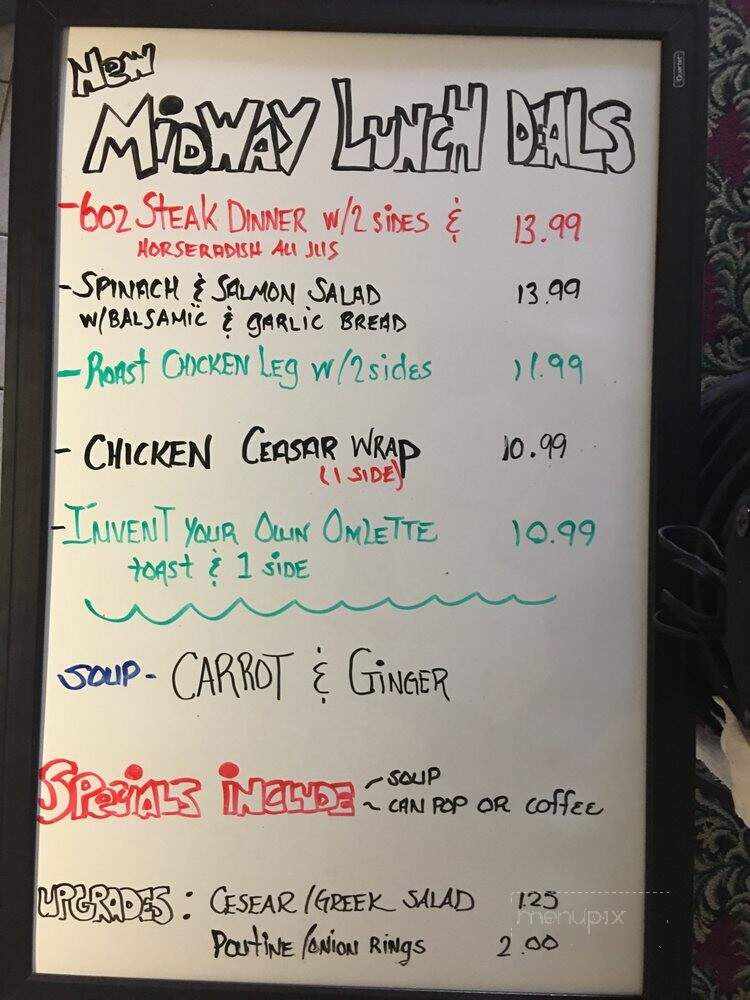 New
MiDWAY LUNCH DEALS
-6oz STEAK DINNER W/2 SIDES & 13.99
HORSERADISH AU JUS
-SPINACH & SALMON SALAD 13.99
W/BALSAMIC & GARLIC BREAD
-ROAST CHICKEN LEG W/2 sides 11.99
- CHICKEN CEASAR WRAP 10.99
(1 SIDE)
-INVENT YOUR OWN OMLETTE 10.99
TOAST & 1 SIDE
SOUP- CARROT & GINGER
SPECIALS INCLUDE - SOUP
~ CAN POP OR COFFEE
UPGRADES: CESEAR/GREEK SALAD 1.25
POUTINE/ONION RINGS 2.00
menupix
Quartet